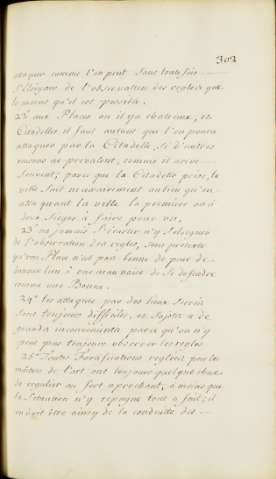 303
attaquer comme l'on peut sans toutesfois
s'Eloigner de l'observation des regles que
le moins qu'il est possible.
22e aux Places ou il y a chateaux, et
Citadelle il faut autant que l'on pourra
attaquer par la Citadelle, si d'autres
raisons ne prevalent, comme il arrive
Souvent; parce que la Citadelle prise, la
ville suit necessairement au lieu qu'en
attaquant la ville la premiere on a
deux Sieges a faire pour un.
23e ne jamais S'Ecarter n'y S'eloigner
de l'observation des regles, sous pretexte
qu'une Place n'est pas bonne de peur de
donner lieu a une mauvaise de se deffendre
comme une Bonne.
24e les attaques par des lieux Serrés
Sont toujours difficiles, et Sujetes a de
grands inconveniens parce qu'on n'y
peut pas toujours observer les regles
25e Toutes Fortifications reglées par les
maitres de l'art ont toujours quelque chose
de regulier ou fort aprochant; a moins que
la Situation n'y repugne tout a fait; il
en doit être ainsy de la conduitte des